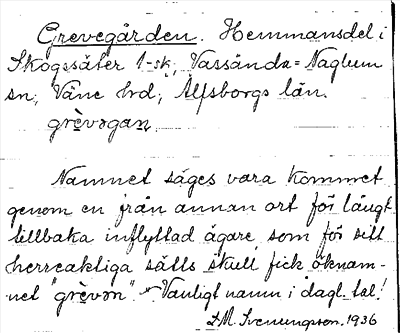 Grevegården. Hemmansdel i
Skogssäter 1-sk, Vassända-Naglum
sn, Väne hrd, Älfsborgs län.
grèvəgan,
Namnet säges vara kommet
genom en från annan ort för längt
tillbaka inflyttad ägare, som för sitt
herreaktiga sätts skull fick öknam-
net "grèvən". Vanligt namn i dagl. tal!
J. M. Svenungson, 1936